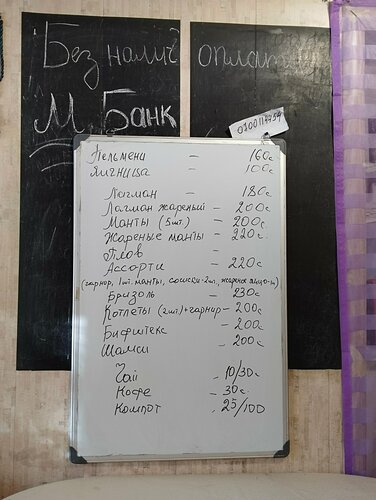 Без налич оплат
М.Банк
0700117759
Пельмени - 160с
Яичница - 100с
Лагман - 180с
Лагман жареный - 200с
Манты (5шт.) - 200с.
Жареные манты - 220с.
Плов -
Ассорти - 220с
(гарнир, 1шт. манты, сосиски-2шт., жареное яйцо-1)
Бризоль - 230с
Котлеты (2шт.)+гарнир - 200с
Бифштекс - 200с.
Шалси - 200с
Чай - 10/30с
Кофе - 30с.
Компот - 25/100